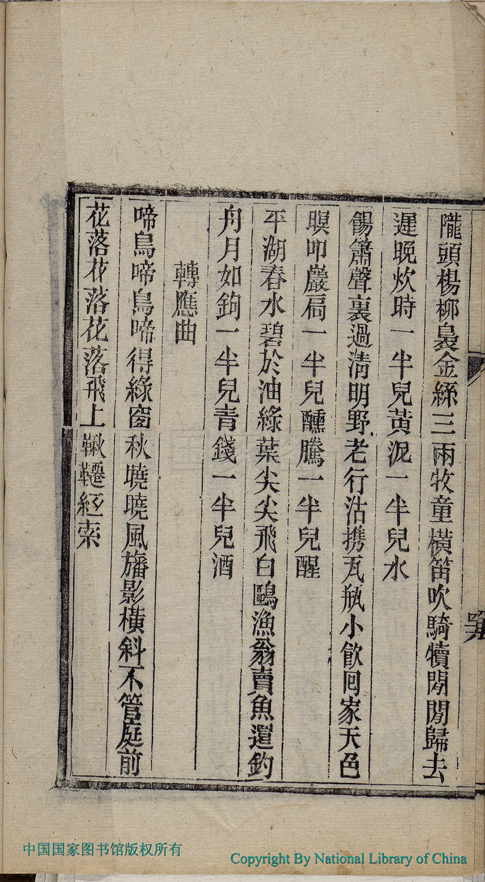 隴頭楊柳裊金絲三兩牧童橫笛吹騎犢閒閒歸去
遲晚炊時一半兒黃泥一半兒水
餳簫聲裏過淸明野老行沽携瓦瓶小飲回家天色
暝叩巖扃一半兒醺騰一半兒醒
平湖春水碧於油綠葉尖尖飛白鷗漁翁賣魚還釣
舟月如鉤一半兒靑錢一半兒酒
轉應曲
啼鳥啼鳥啼得綠窗秋曉曉風簾影橫斜不管庭前
花落花落花落飛上鞦韆紅索
中国国家图书馆版权所有
Copyright By National Library of China